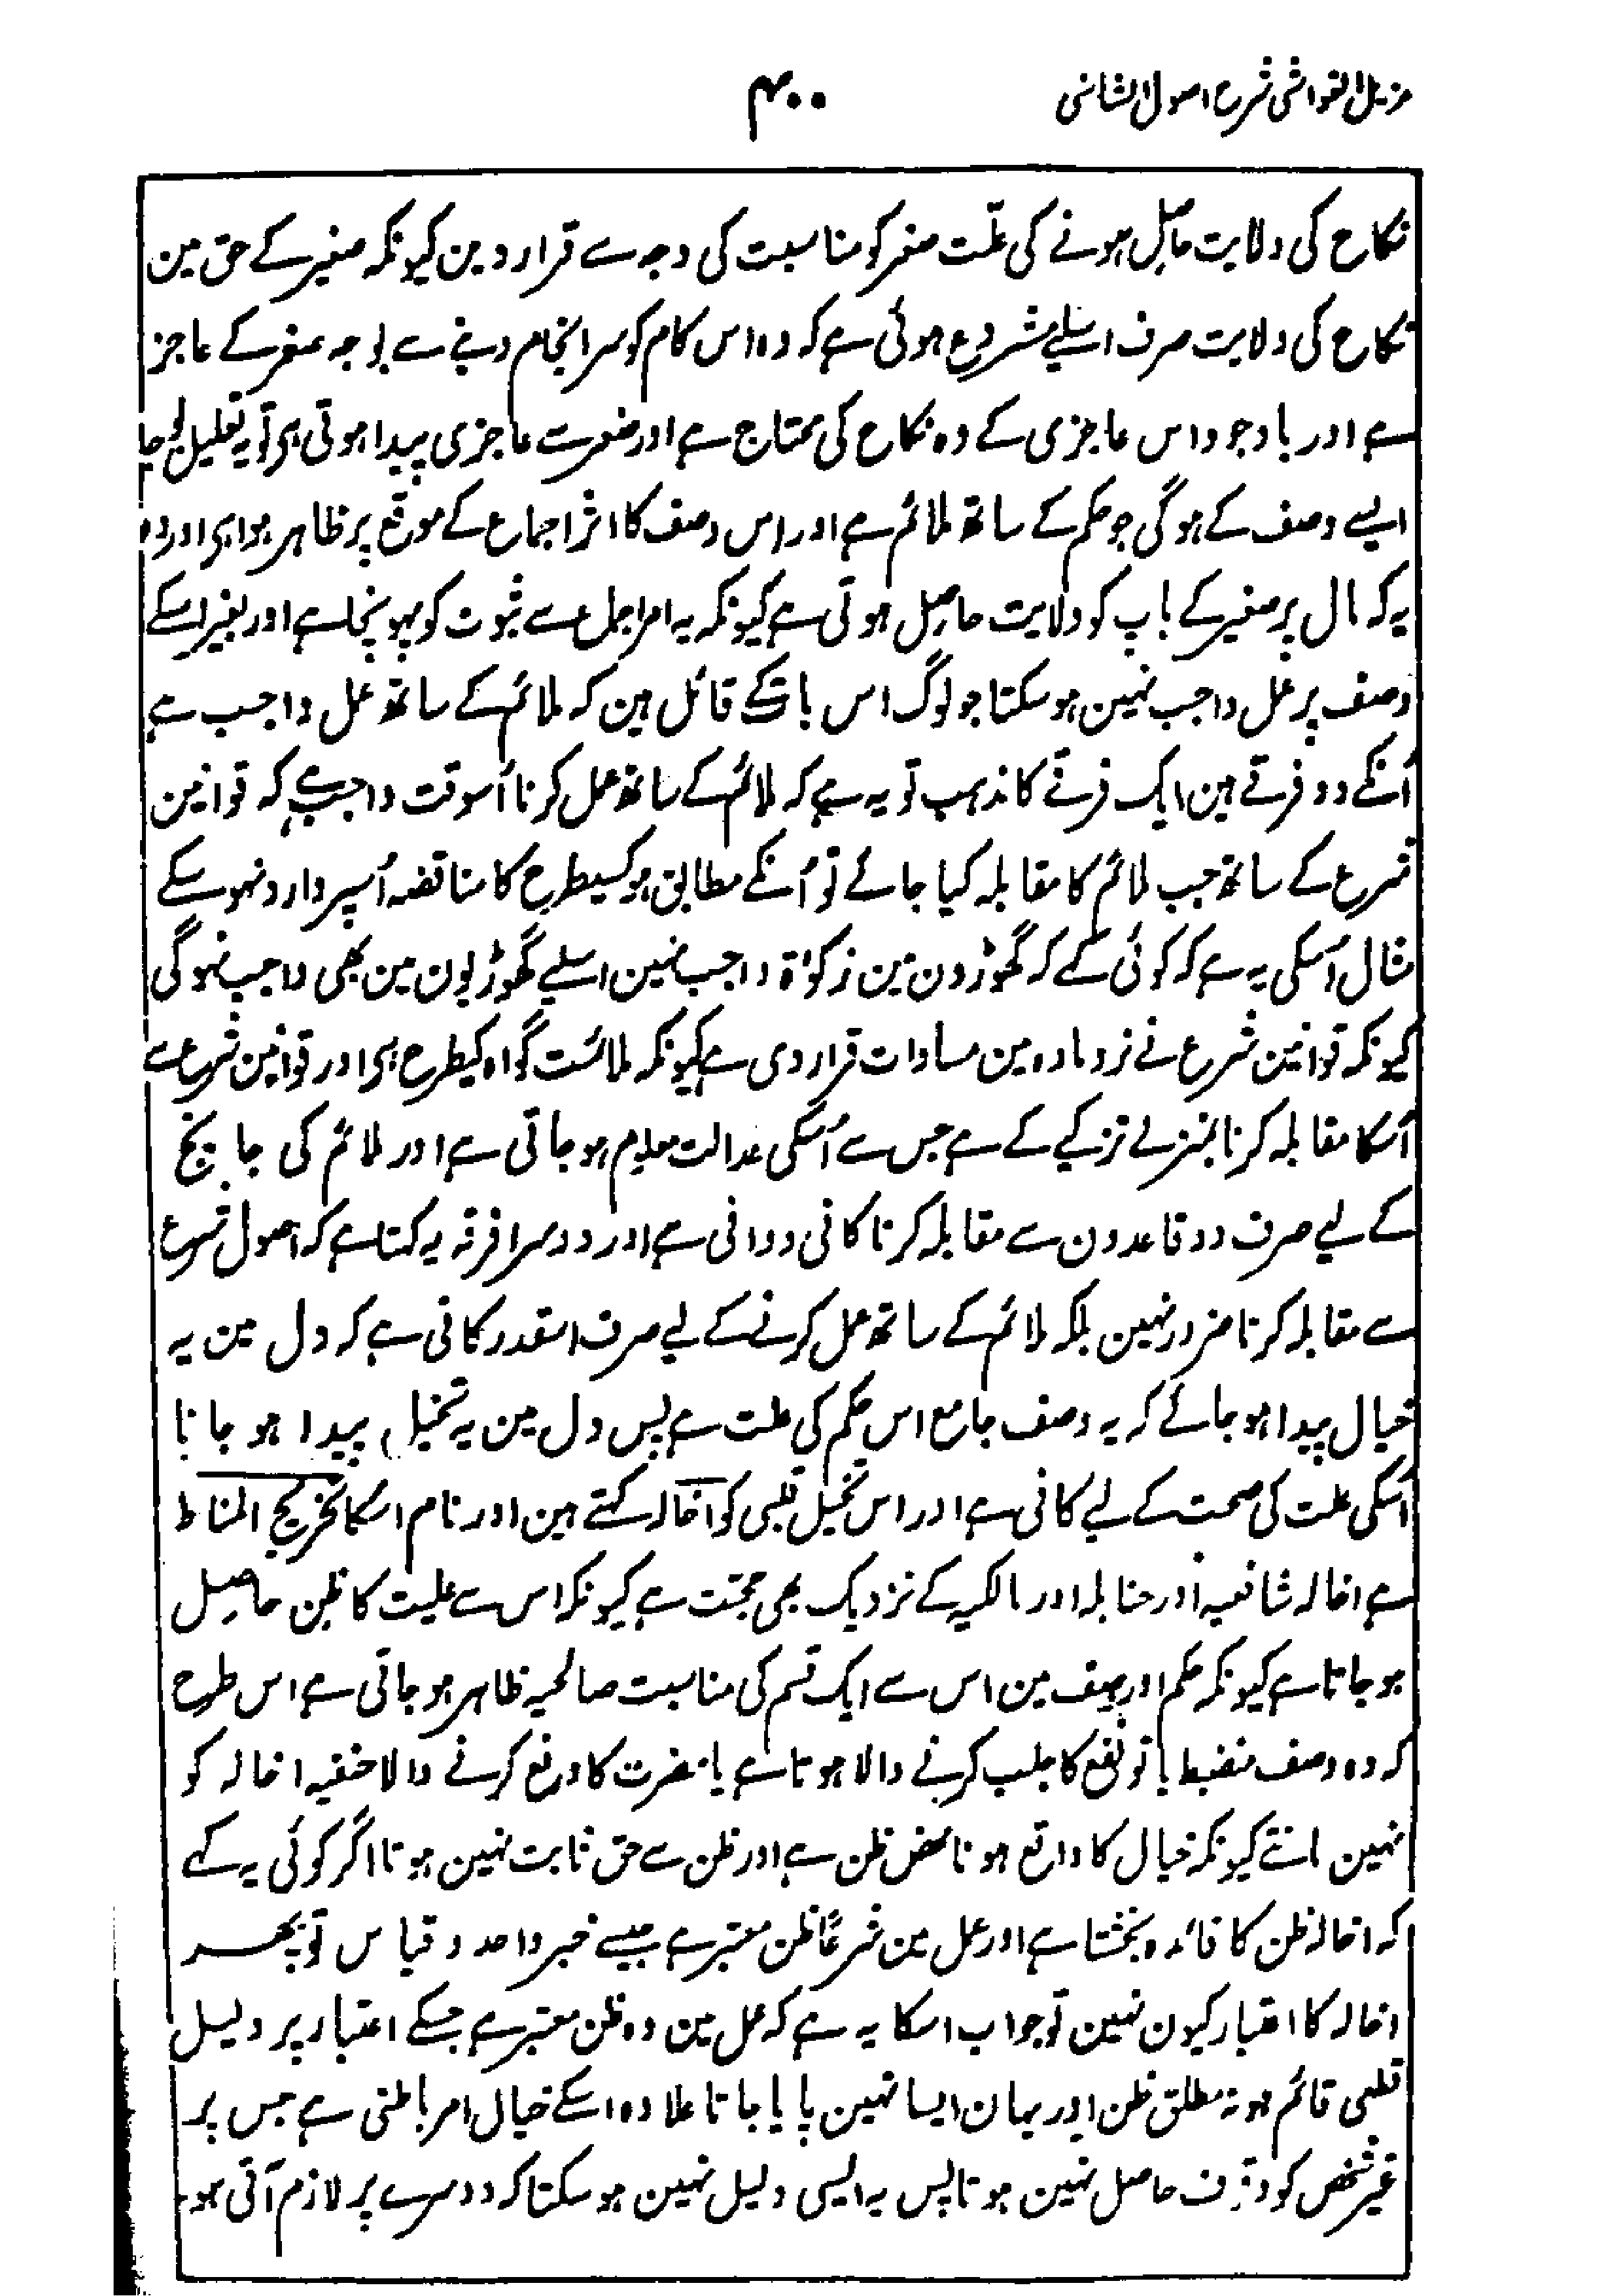 مزیل الغواشی شرح اصول الشاشی
۴۰۰
نکاح کی ولایت حاصل ہونے کی علّت صغر کو مناسبت کی وجہ سے قرار دین کیونکہ صغیر کے حق مین
نکاح کی ولایت صرف اسلیے مشروع ہوئی ہے کہ وہ اس کام کو سرانجام دینے سے بوجہ صغر کے عاجز
ہے اور باوجود اس عاجزی کے وہ نکاح کی محتاج ہے اور صغر سے عاجزی پیدا ہوتی ہر تو یہ تعلیل
ایسے وصف کے ہوگی جو حکم کے ساتھ ملائم ہے اور اس وصف کا اثر اجماع کے موقع پر ظاہر ہوا ہر اور وہ
یہ کہ مال پر صغیر کے باپ کو ولایت حاصل ہوتی ہے کیونکہ یہ امر اجماع سے ثبوت کو پہونچا ہے اور بغیر اسکے
وصف پر عمل واجب نہین ہو سکتا جو لوگ اس بات کے قائل ہین کہ ملائم کے ساتھ عمل واجب ہے
اُنکے دو فرقے ہین ایک فرقے کا مذہب تو یہ ہے کہ ملائم کے ساتھ عمل کرنا اُسوقت واجب ہے کہ قوانین
شرع کے ساتھ جب ملائم کا مقابلہ کیا جائے تو اُنکے مطابق ہو کسیطرح کا مناقضہ اُسپر وارد نہوسکے
مثال اُسکی یہ ہے کہ کوئی کہے کہ گھوڑون مین زکوٰۃ واجب نہین اسلیے گھوڑیون مین بھی واجب نہوگی
کیونکہ قوانین شرع نے نر و مادہ مین مساوات قرار دی ہے کیونکہ ملائمت گواہ کیطرح ہر اور قوانین شرع سے
اُسکا مقابلہ کرنا بمنزلے تزکیے کے ہے جس سے اُسکی عدالت معلوم ہو جاتی ہے اور ملائم کی جانچ
کے لیے صرف دو قاعدون سے مقابلہ کرنا کافی و وافی ہے اور دوسرا فرقہ یہ کہتا ہے کہ اصول شرع
سے مقابلہ کرنا ضرور نہین بلکہ ملائم کے ساتھ عمل کرنے کے لیے صرف اسقدر کافی ہے کہ دل مین یہ
خیال پیدا ہو جائے کہ یہ وصف جامع اس حکم کی علت ہے پس دل مین یہ تخییل پیدا ہو جانا
اُسکی علت کی صحت کے لیے کافی ہے اور اس تخییل قلبی کو اخالہ کہتے ہین اور نام اسکا تخریج المناط
ہے اخالہ شافعیہ اور حنابلہ اور مالکیہ کے نزدیک بھی حجّت ہے کیونکہ اس سے علیت کا ظن حاصل
ہو جاتا ہے کیونکہ حکم اور وصف مین اس سے ایک قسم کی مناسبت صالحیہ ظاہر ہو جاتی ہے اس طرح
کہ وہ وصف منضبط یا تو نفع کا جلب کرنے والا ہوتا ہے یا مضرت کا دفع کرنے والا حنفیہ اخالہ کو
نہین مانتے کیونکہ خیال کا واقع ہونا محض ظن ہے اور ظن سے حق ثابت نہین ہوتا اگر کوئی یہ کہے
کہ اخالہ ظن کا فائدہ بخشتا ہے اور عمل مین شرعًا ظن معتبر ہے جیسے خبر واحد و قیاس تو پھر
اخالہ کا اعتبار کیون نہین تو جواب اسکا یہ ہے کہ عمل مین وہ ظن معتبر ہے جسکے اعتبار پر دلیل
قطعی قائم ہو نہ مطلق ظن اور یہان ایسا نہین پایا جاتا علاوہ اسکے خیال امر باطنی ہے جس پر
غیر شخص کو وقوف حاصل نہین ہوتا پس یہ ایسی دلیل نہین ہو سکتا کہ دوسرے پر لازم آتی ہو